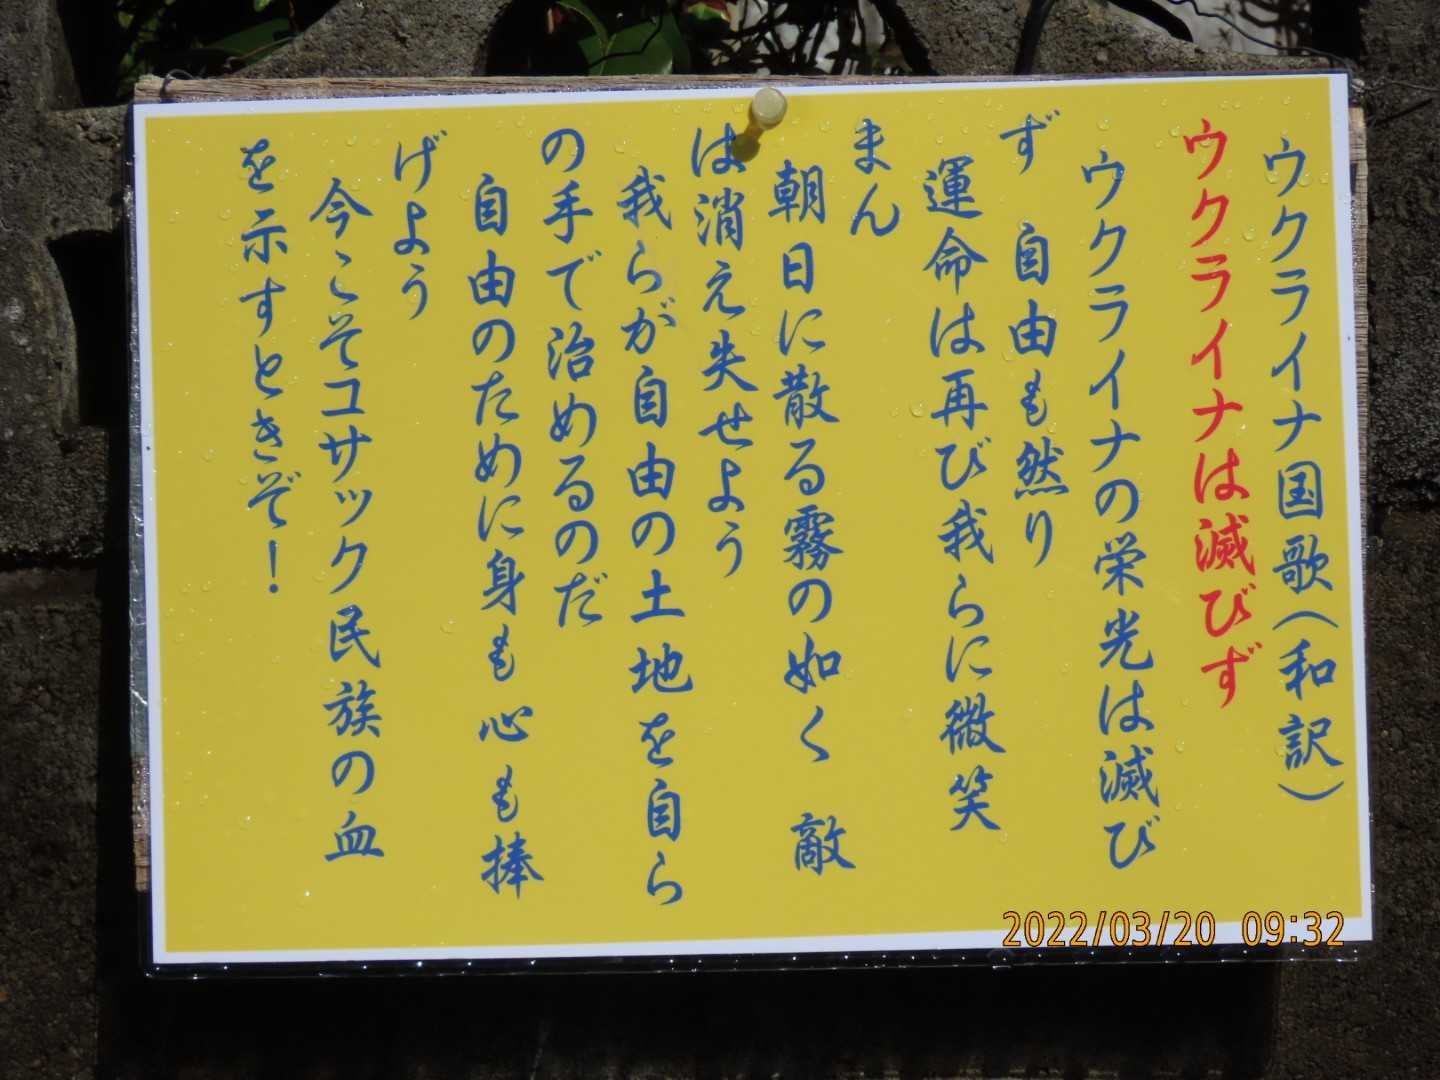 ウクライナ国歌（和訳）
ウクライナは滅びず
ウクライナの栄光は滅び
ず　自由も然り
運命は再び我らに微笑
まん
朝日に散る霧の如く　敵
は消え失せよう
我らが自由の土地を自ら
の手で治めるのだ
自由のために身も心も捧
げよう
今こそコサック民族の血
を示すときぞ！
2022/03/20 09:32